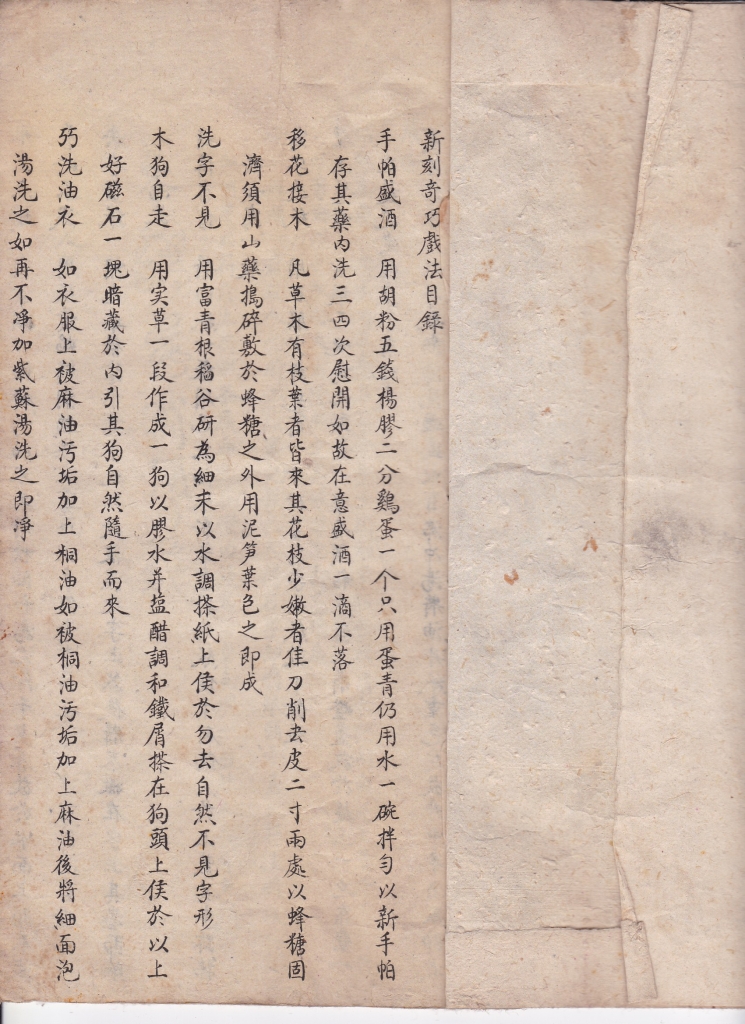 新刻奇巧戲法目錄
手帕盛酒　用胡粉五錢楊膠二分鷄蛋一个只用蛋青仍用水一碗拌勻以新手帕
存其藥內洗三四次慰開如故在意盛酒一滴不落
移花接木　凡草木有枝葉者皆來其花枝少嫩者佳刀削去皮二寸兩處以蜂糖固
濟須用山藥搗碎敷於蜂糖之外用泥笋葉包之即成
洗字不見　用富青根稻谷研為細末以水調搽紙上侯於勿去自然不見字形
木狗自走　用实草一段作成一狗以膠水并盐醋調和鐵屑搽在狗頭上侯於以上
好磁石一塊暗藏於內引其狗自然隨手而來
巧洗油衣　如衣服上被麻油汚垢加上桐油如被桐油汚垢加上麻油後將細面泡
湯洗之如再不凈加紫蘇湯洗之即凈